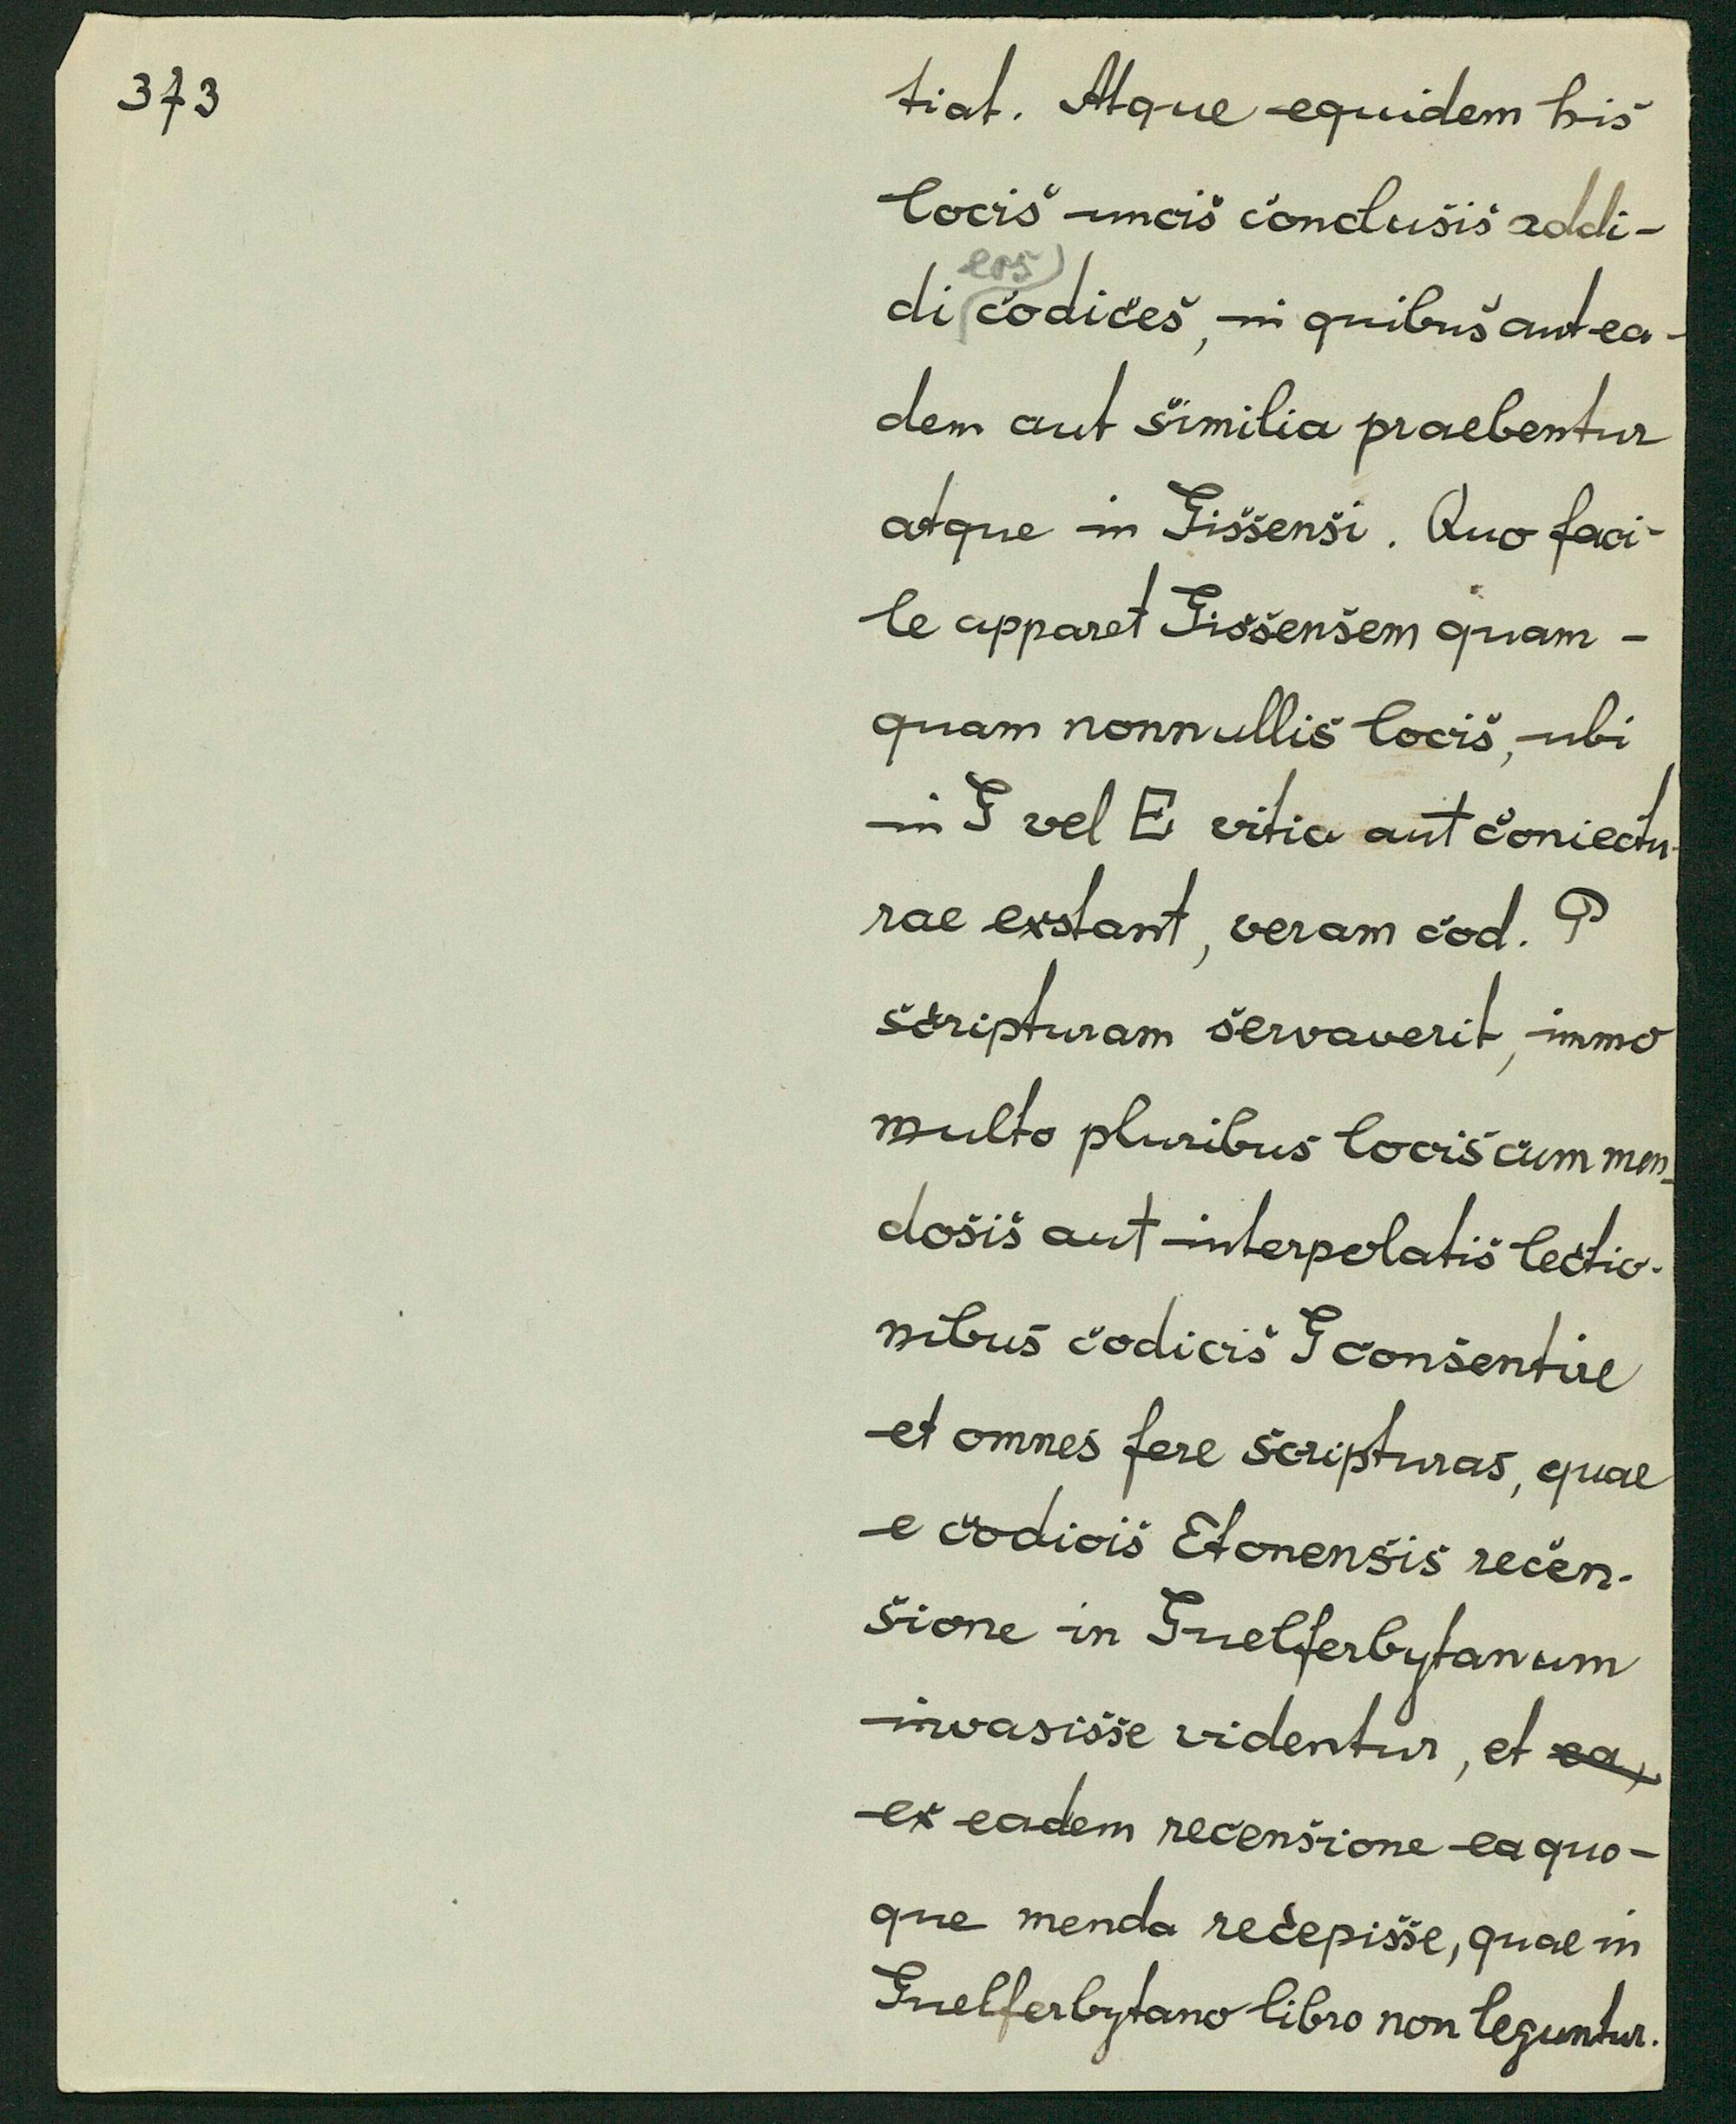 373
tiat. Atque equidem his
locis uncis conclusis addi-
di eos codices, in quibus aut ea-
dem aut similia praebentur
atque in Gissensi. Quo faci-
le apparet Gissensem quam-
quam nonnullis locis, ubi
in G vel E vitia aut coniectu-
rae exstant, veram cod. P
scripturam servaverit, immo
multo pluribus locis cum men-
dosis aut interpolatis lectio-
nibus codicis G consentire
et omnes fere scripturas, quae
e codicis Etonensis recen-
sione in Guelferbytanum
invasisse videntur, et ea,
ex eadem recensione ea quo-
que menda recepisse, quae in
Guelferbytano libro non leguntur.